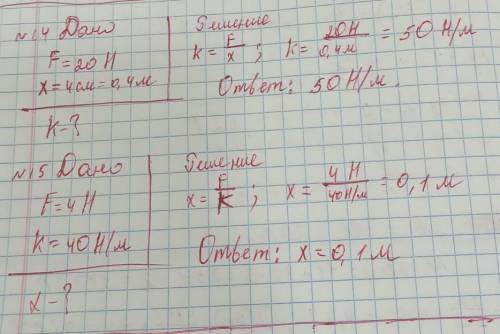 №14 Дано
F=20Н
x=4см=0,4м
k-?
Решение
k=F/x; k=20Н/0,4м=50Н/м
Ответ: 50Н/м.
№15 Дано
F=4Н
k=40Н/м
x-?
Решение
x=F/k; x=4Н/40Н/м=0,1м
Ответ: x=0,1м